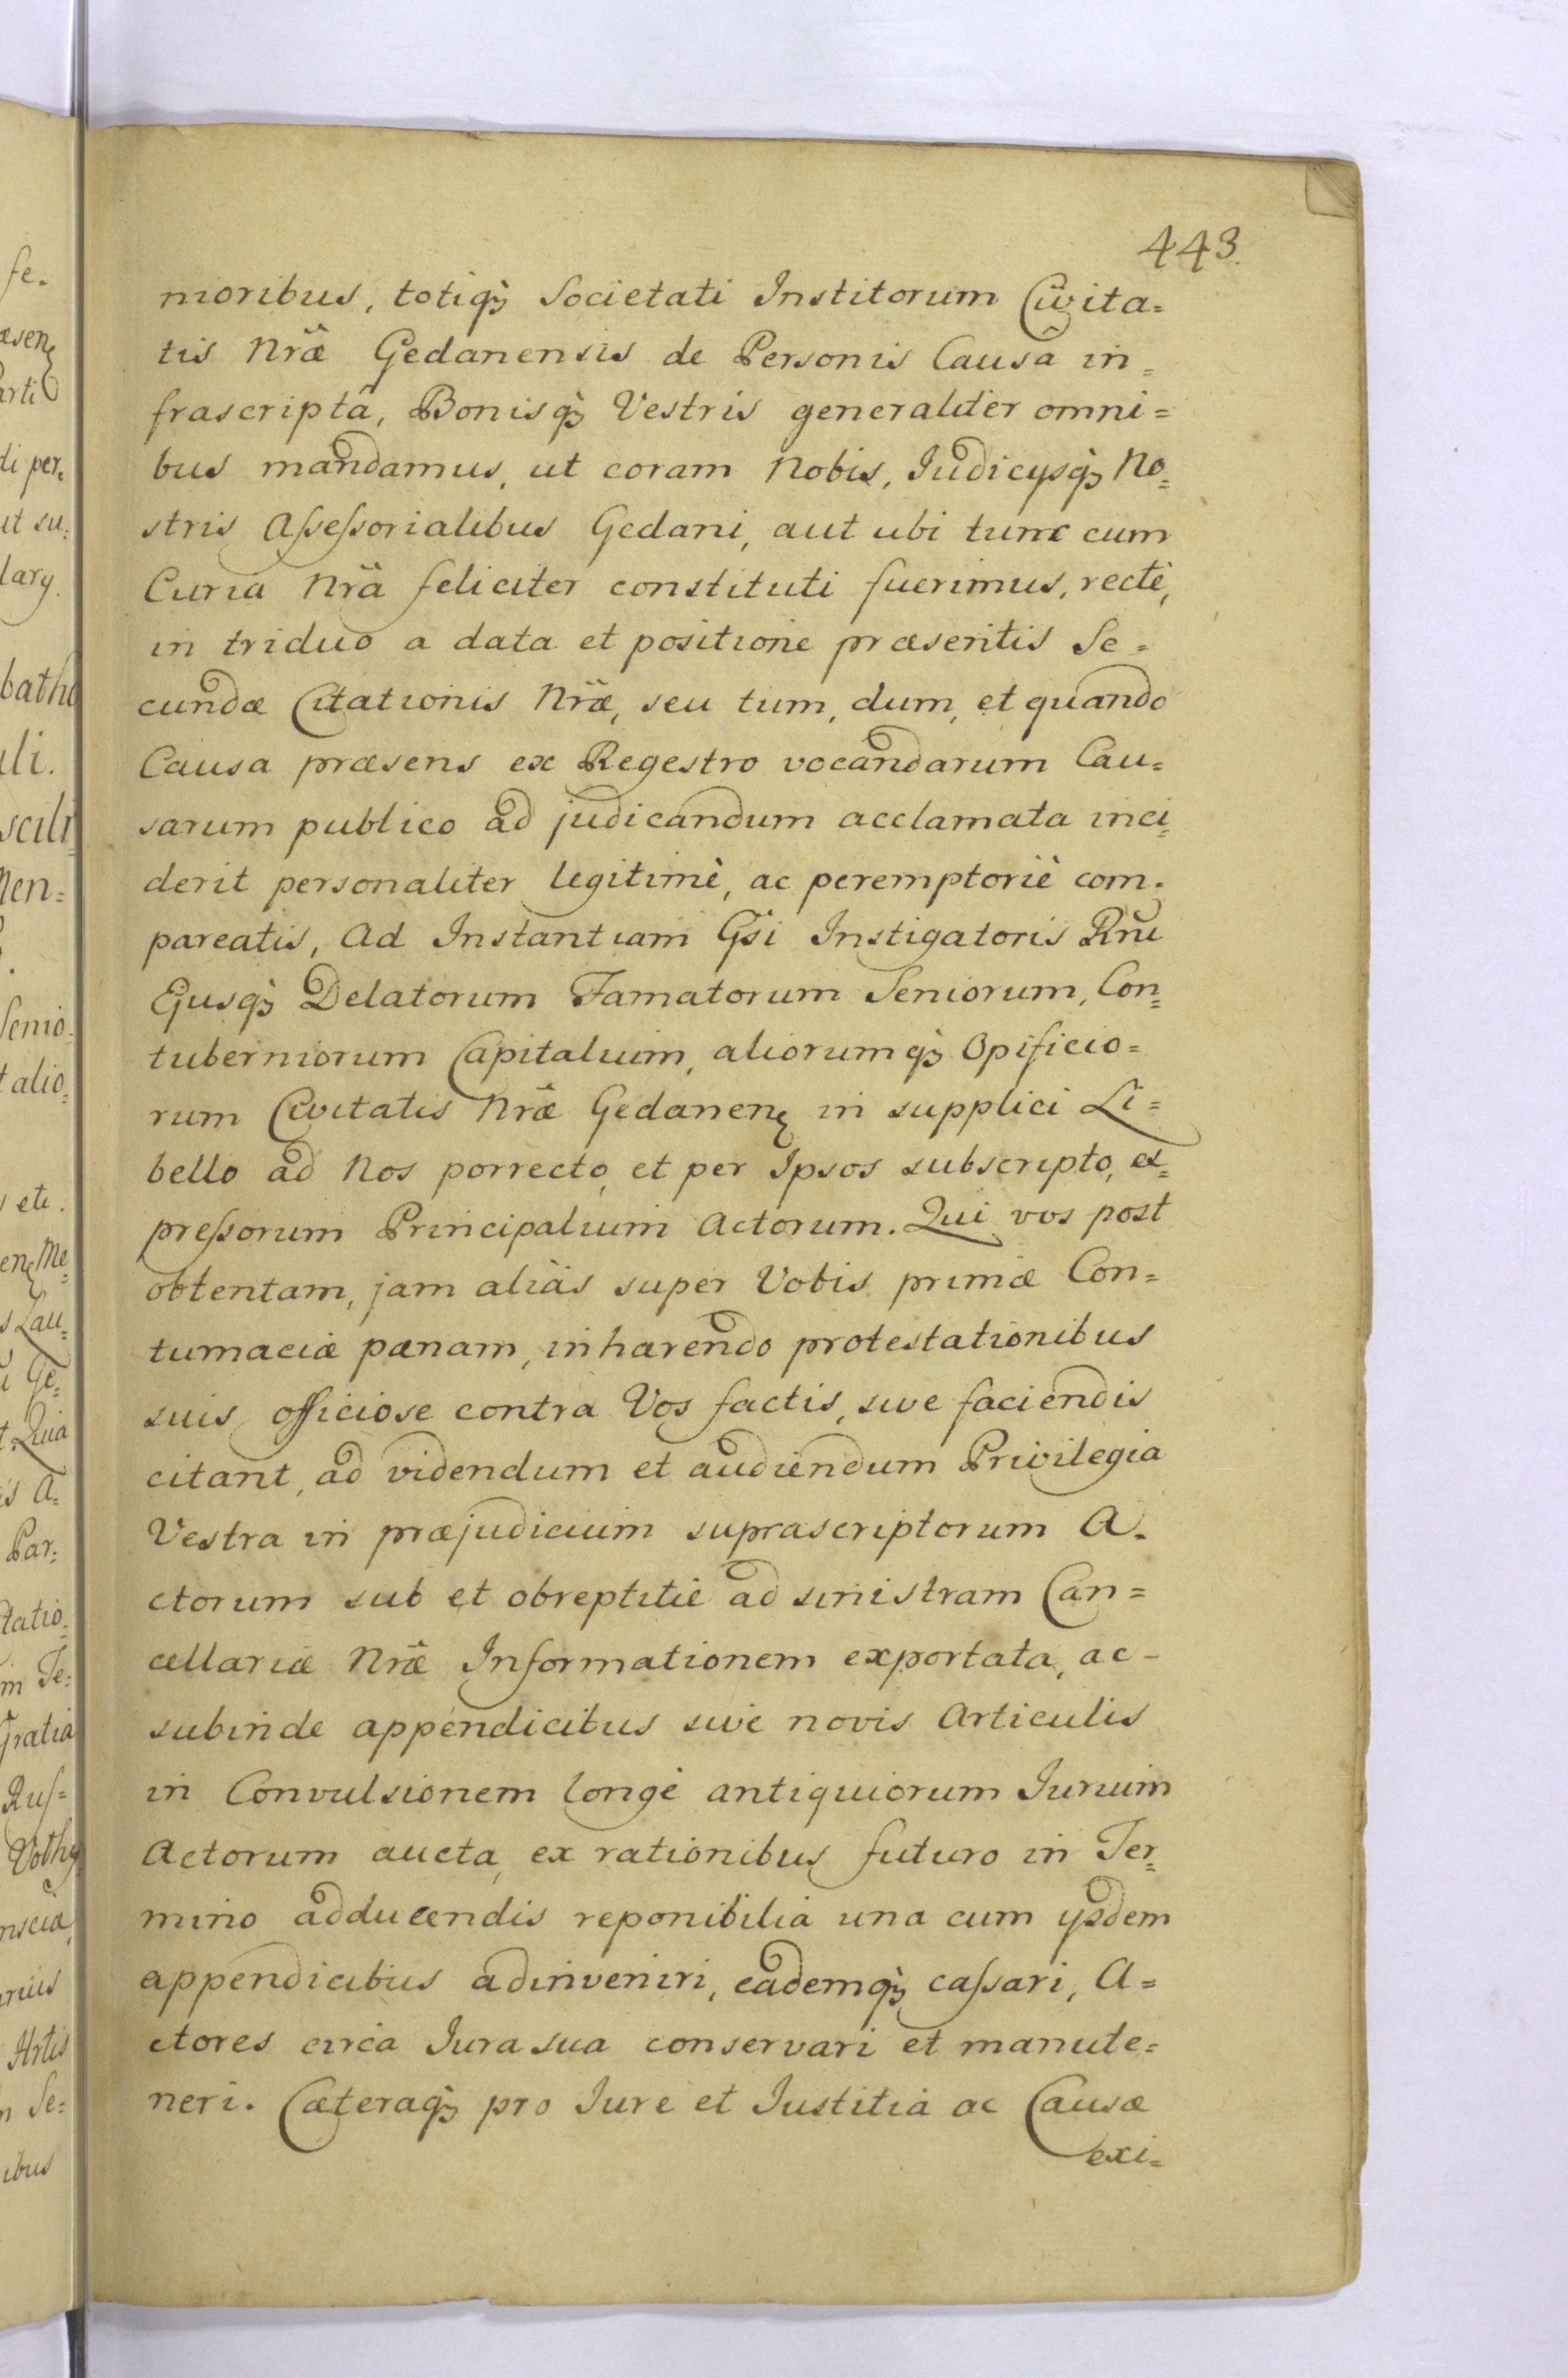 443.
nioribus, totiqꝫ Societati Institorum Civita=
tis Nræ Gedanensis de Personis Causâ in=
frascriptâ, Bonisqꝫ Vestris generaliter omni=
bus mandamus, ut coram Nobis, Judicysqꝫ No=
stris Aſseſsorialibus Gedani, aut ubi tunc cum
Curia Nrâ feliciter constituti fuerimus, rectè,
in triduo a data et positione præsentis Se=
cundæ Citationis Nræ, seu tum, dum, et quando
Causa præsens ex Regestro vocandarum Cau=
sarum publico ad judicandum acclamata inci=
derit personaliter legitimè, ac peremptoriè com=
pareatis, Ad Instantiam Gsi Instigatoris Rni
Ejusqꝫ Delatorum Famatorum Seniorum, Con=
tuberniorum Capitalium, aliorumqꝫ Opificio=
rum Civitatis Nræ Gedanen in supplici Li=
bello ad Nos porrecto, et per Ipsos subscripto, ex=
preſsorum Principalium Actorum. Qui vos post
obtentam, jam aliàs super Vobis primæ Con=
tumaciæ pænam, inhærendo protestationibus
suis officiose contra Vos factis, sive faciendis
citant, ad videndum et audiendum Privilegia
Vestra in præjudicium suprascriptorum A=
ctorum sub et obreptitiè ad sinistram Can=
cellariæ Nræ Informationem exportata, ac-
subinde appendicibus sive novis Articulis
in Convulsionem longè antiquiorum Jurium
Actorum aucta, ex rationibus futuro in Ter=
mino adducendis reponibilia una cum ysdem
appendicibus adinveniri, eademqꝫ caſsari, A=
ctores circa Jura sua conservari et manute=
neri. Cæteraqꝫ pro Jure et Justitia ac Causæ
exi=